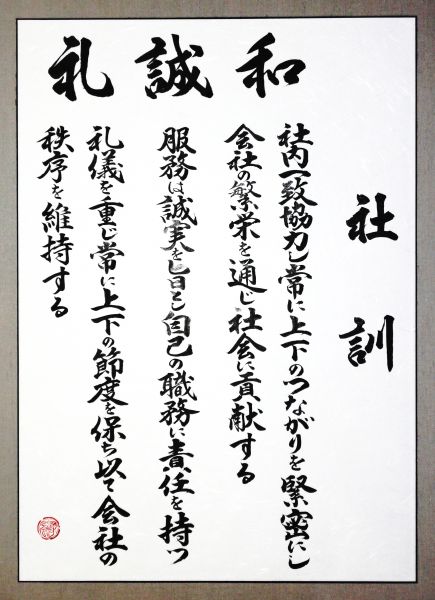 社訓
和 誠 礼
社内一致協力し常に上下のつながりを緊密にし
会社の繁栄を通じ社会に貢献する
服務は誠実を旨とし自己の職務に責任を持つ
礼儀を重じ常に上下の節度を保ち以て会社の
秩序を維持する